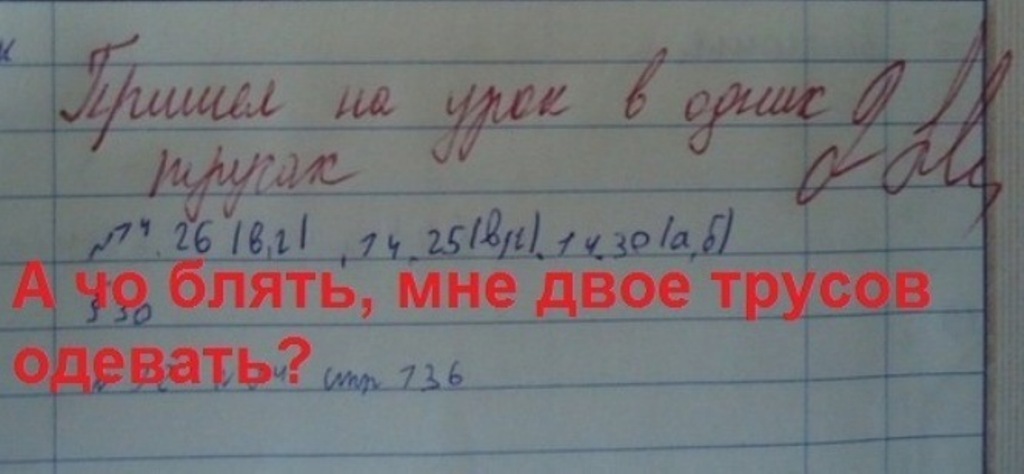 Пришел на урок в одних
трусах
№14.26(в,г), 14.25(в,г), 14.30(а,б)
А чо блять, мне двое трусов
§30
одевать?
стр 136